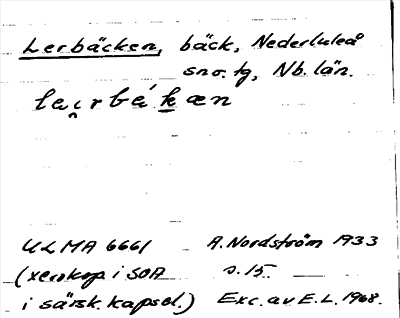 Lerbäcken, bäck, Nederluleå
sn o. tg, Nb. län.
lai̯rbákæn
ULMA 6661 A. Nordström 1933
(xerokop. i SOA s. 15.
i särsk. kapsel.) Exc. av E.L. 1968.